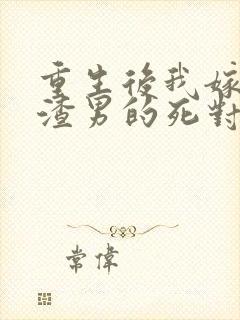 重生後我嫁
渣男的死對
常偉